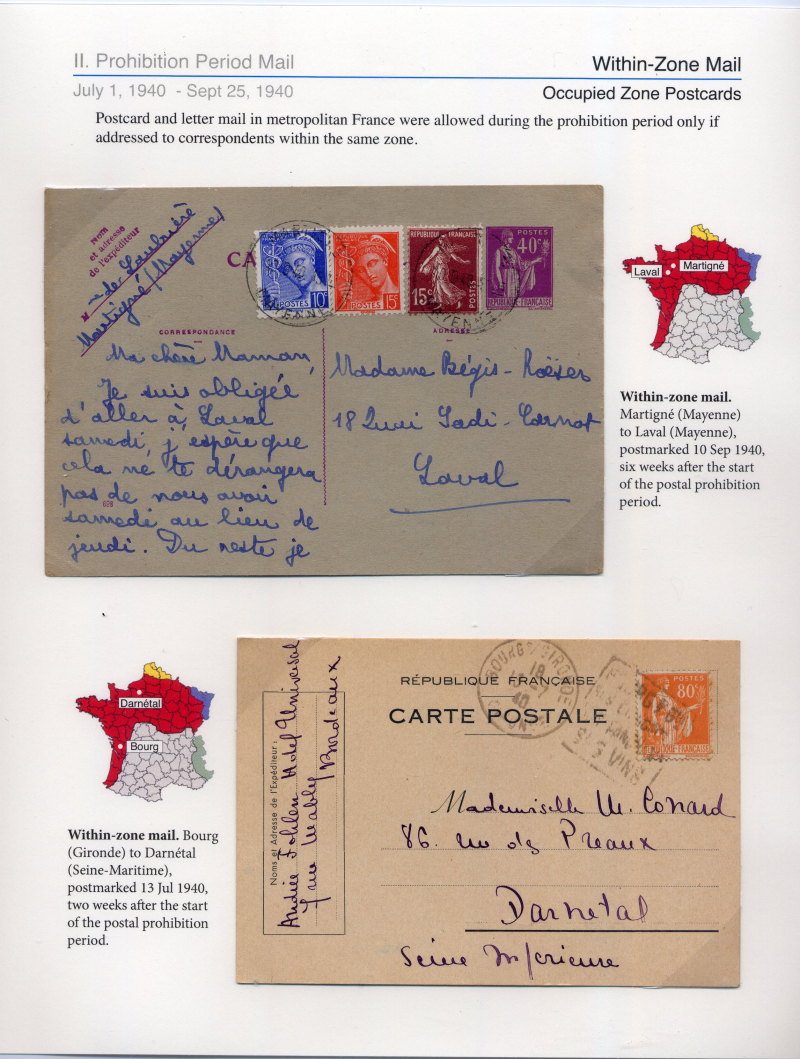 II. Prohibition Period Mail
Within-Zone Mail
July 1, 1940 - Sept 25, 1940
Occupied Zone Postcards
Postcard and letter mail in metropolitan France were allowed during the prohibition period only if
addressed to correspondents within the same zone.
Nom
et adresse
de l'expéditeur
M
Martigné (Mayenne)
CA
POSTES 10c
POSTES 15c
RÉPUBLIQUE FRANÇAISE
15c
POSTES
POSTES
40c
RÉPUBLIQUE FRANÇAISE
MAYENNE
MAYENNE
CORRESPONDANCE
ADRESSE
Ma chère Maman,
Je suis obligée
d'aller à Laval
samedi, j'espère que
cela ne te dérangera
pas de nous avoir
samedi au lieu de
jeudi. Du reste je
Madame Bégis-
18 Quai Sadi-Carnot
Laval
Laval
Martigné
Within-zone mail.
Martigné (Mayenne)
to Laval (Mayenne),
postmarked 10 Sep 1940,
six weeks after the start
of the postal prohibition
period.
Darnétal
Bourg
Within-zone mail. Bourg
(Gironde) to Darnétal
(Seine-Maritime),
postmarked 13 Jul 1940,
two weeks after the start
of the postal prohibition
period.
RÉPUBLIQUE FRANÇAISE
CARTE POSTALE
BOURG GIRONDE
SES VINS
POSTES
80c
RÉPUBLIQUE FRANÇAISE
Noms et Adresse de l'Expéditeur :
Andrée Hotel Universal
7 rue Mably Bordeaux
Mademoiselle M. Conard
86. rue des Preaux
Darnetal
Seine Inferieure